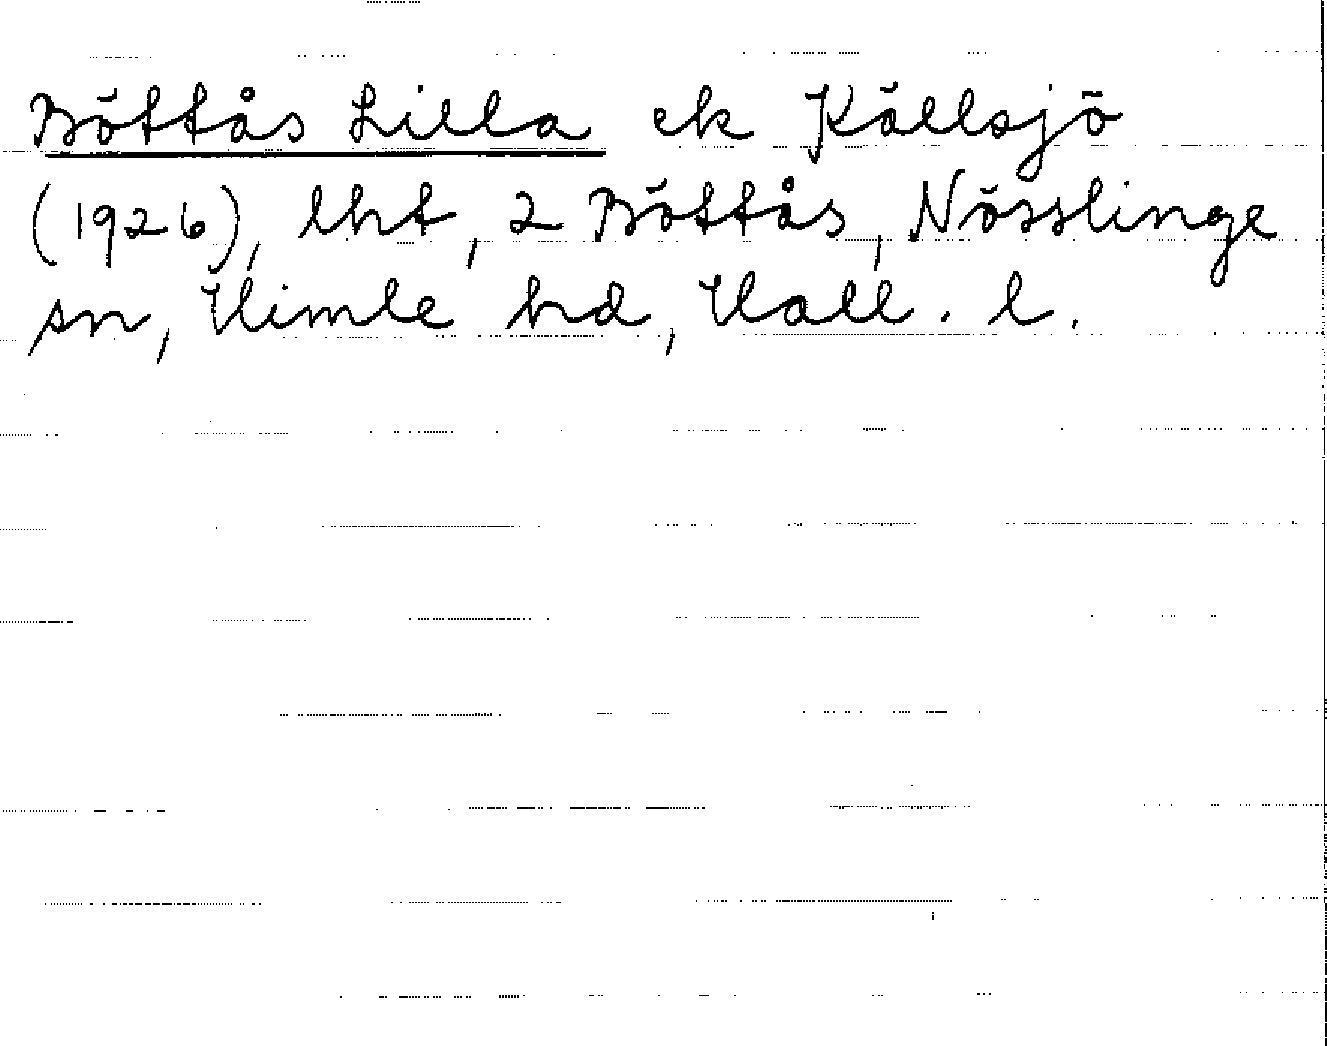 Böttås Lilla ek Källsjö
(1926), lht, 2 Böttås, Nösslinge
sn, Himle hd, Hall. l.